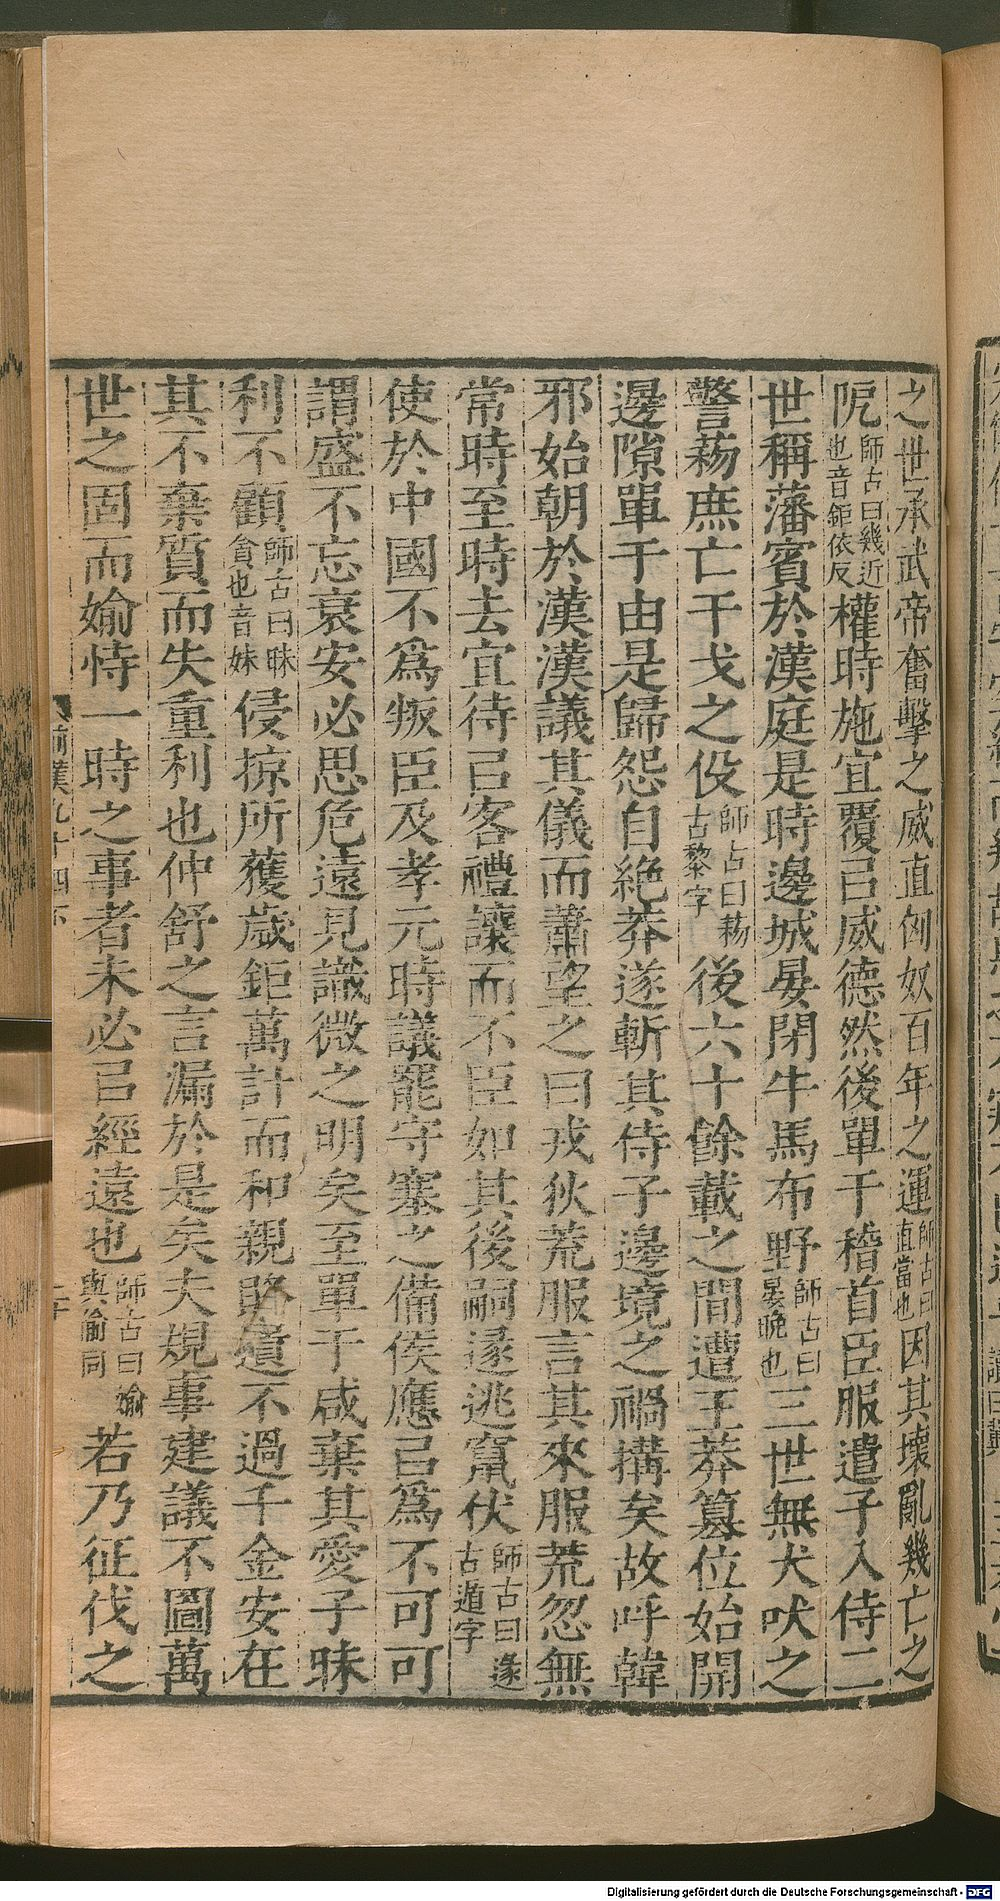 之世承武帝奮擊之威直匈奴百年之運師古曰直當也因其壞亂幾亡之
阸師古曰幾近也音鉅依反權時施宜覆㠯威德然後單于稽首臣服遣子入侍二
世稱藩賓於漢庭是時邊城晏閉牛馬布野師古曰晏晚也三世無犬吠之
警䔣庶亡干戈之役師古曰䔣古黎字後六十餘載之間遭王莽篡位始開
邊隙單于由是歸怨自絕莽遂斬其侍子邊境之禍搆矣故呼韓
邪始朝於漢漢議其儀而蕭望之曰戎狄荒服言其來服荒忽無
常時至時去宜待㠯客禮讓而不臣如其後嗣遂逃竄伏師古曰遂古遁字
使於中國不爲叛臣及孝元時議罷守塞之備侯應㠯爲不可可
謂盛不忘衰安必思危遠見識微之明矣至單于咸棄其愛子昧
利不顧師古曰昧貪也音妹侵掠所獲歲鉅萬計而和親賂遺不過千金安在
其不棄質而失重利也仲舒之言漏於是矣夫規事建議不圖萬
世之固而媮恃一時之事者未必㠯經遠也師古曰媮與偷同若乃征伐之
前漢九十四下
二十
Digitalisierung gefördert durch die Deutsche Forschungsgemeinschaft - DFG